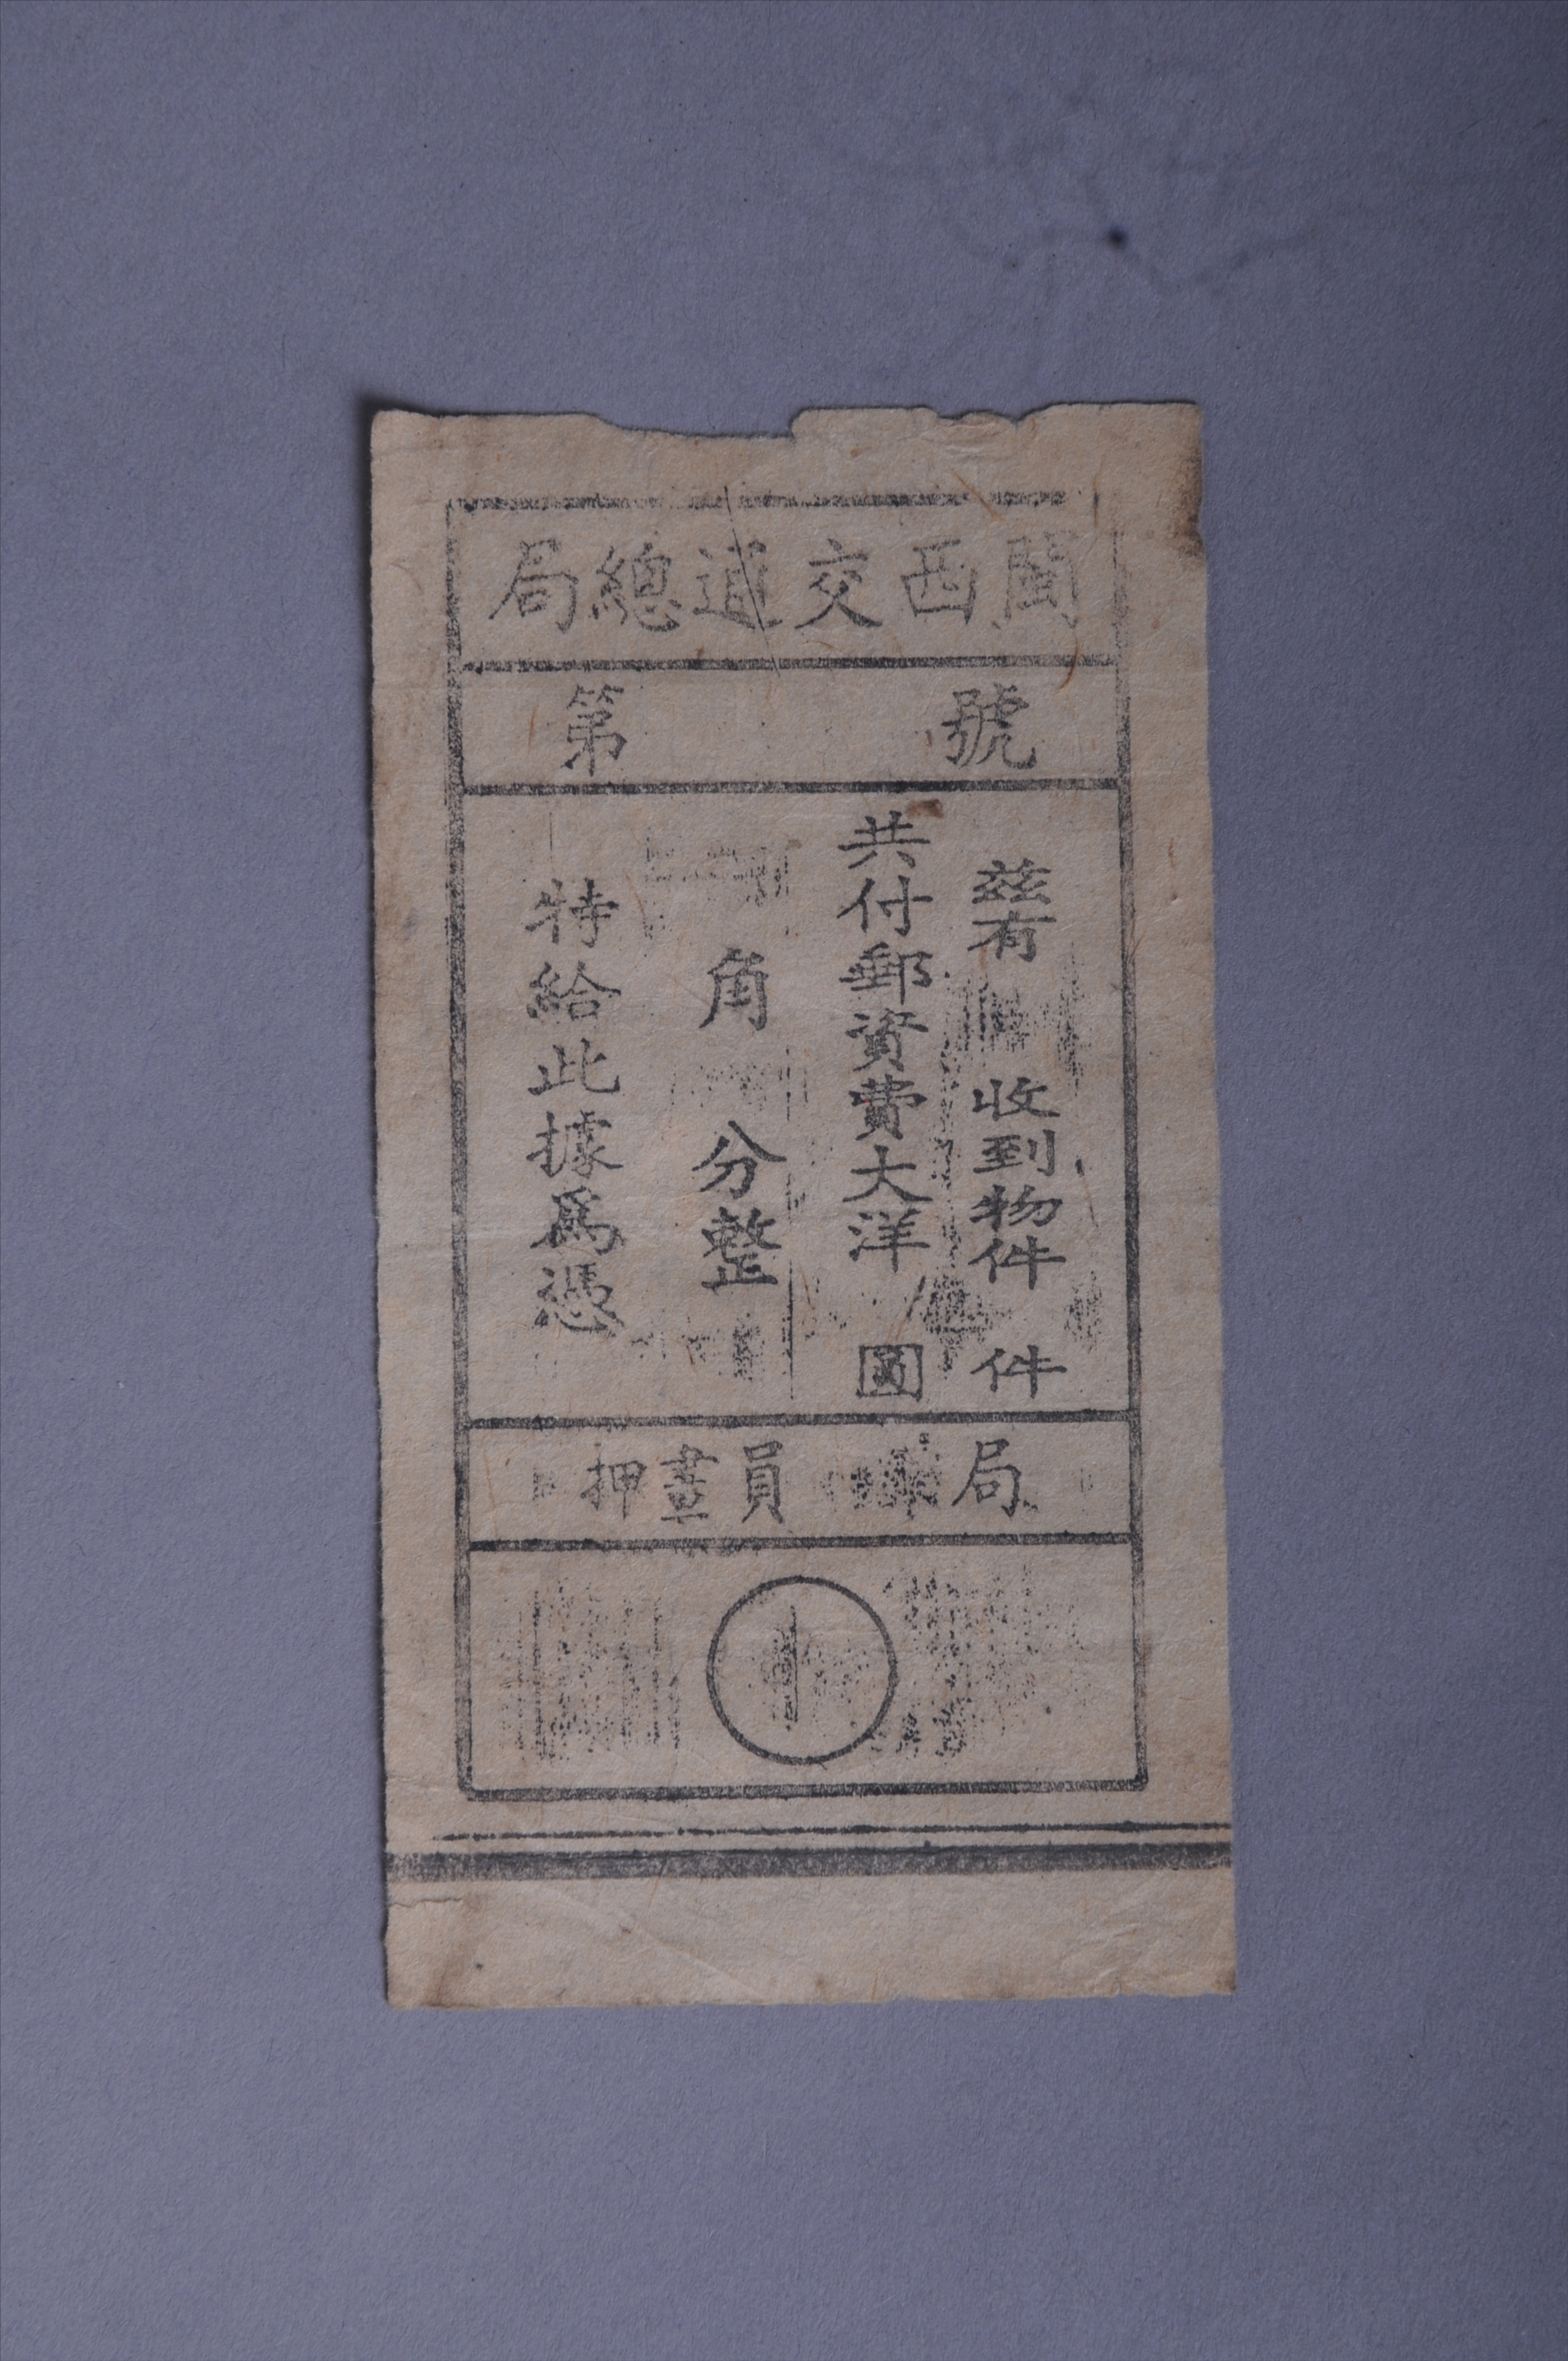 閩西交通總局
第 號
茲有 收到物件 件
共付郵資費大洋 圓
角 分整
特給此據爲憑
局 員畫押